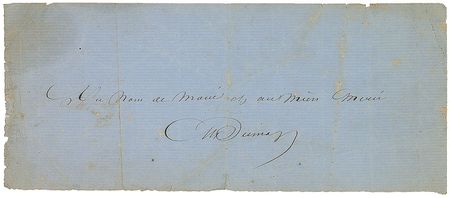 Au Nom de Marie et au Mien Merci
Dumas